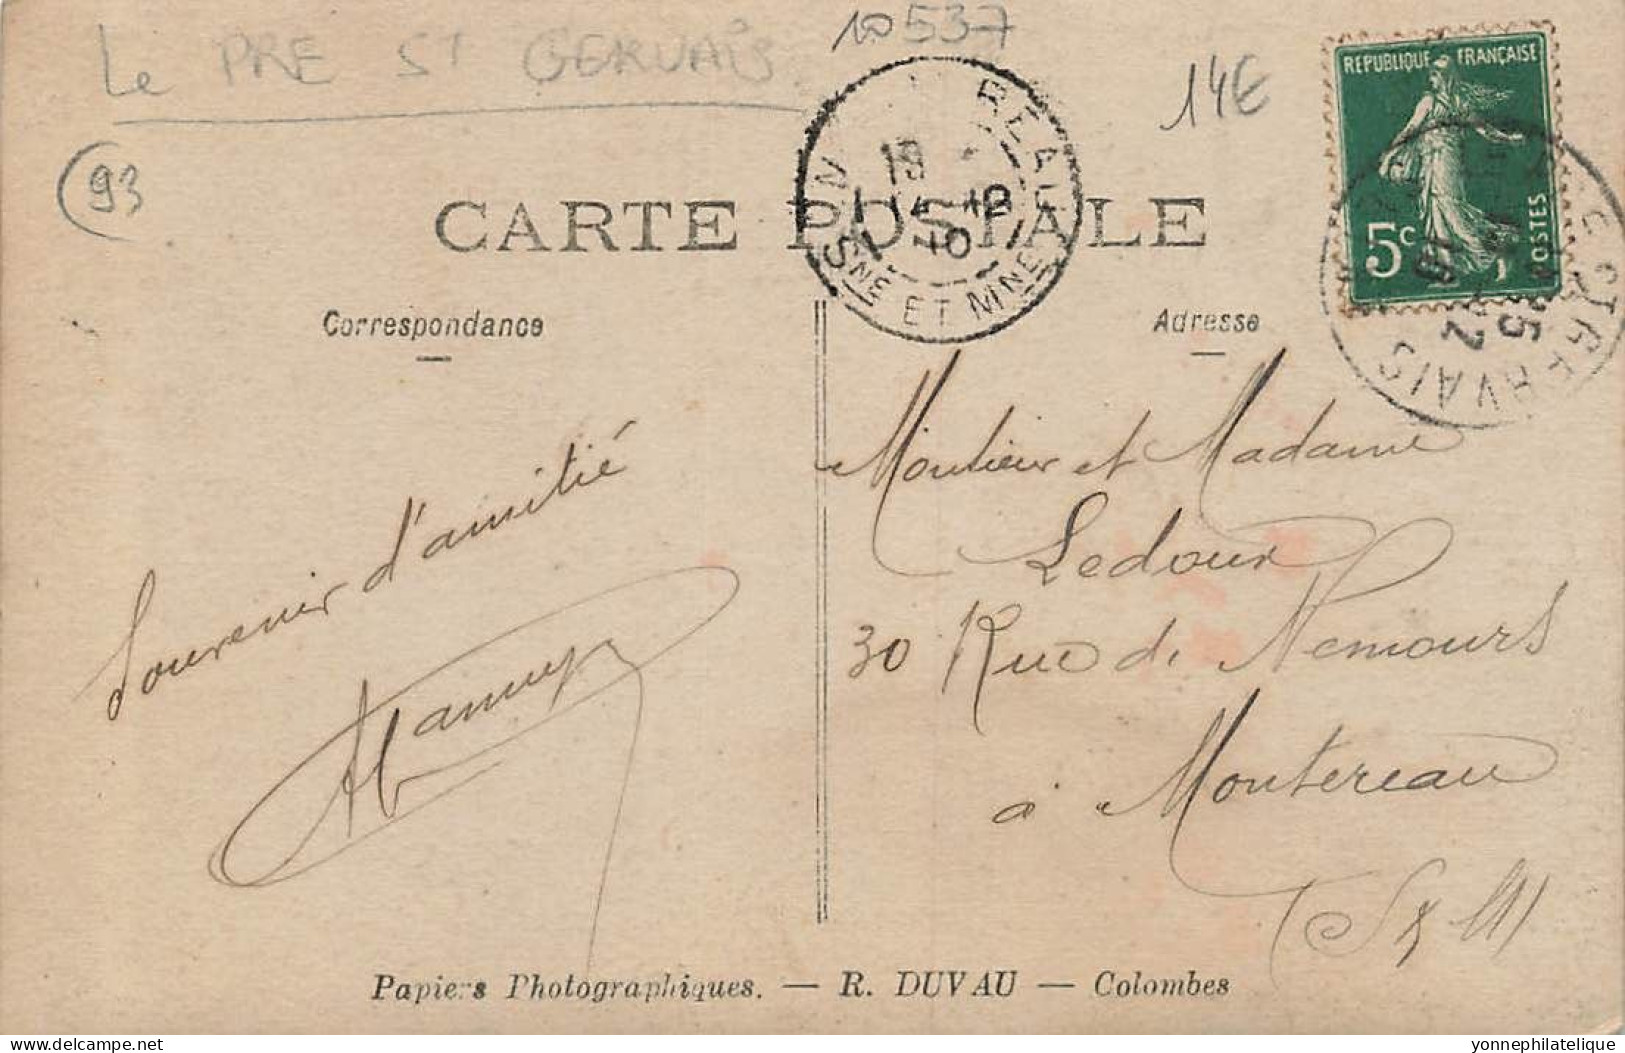 Le PRE ST GERVAIS
10537
14€
93
REPUBLIQUE FRANÇAISE
5c
POSTES
CARTE POSTALE
SNE ET MNE
Correspondance
Adresse
Souvenir d'amitié
Monsieur et Madame
Ledoux
30 Rue de Nemours
à Montereau
S & M
Papiers Photographiques. — R. DUVAU — Colombes
delcampe.net
yonnephilatelique